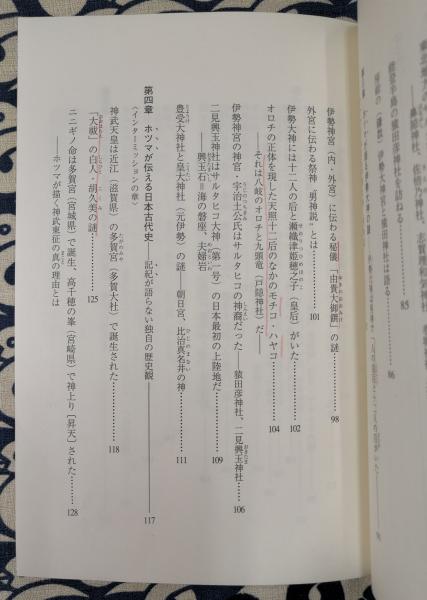 伊勢神宮(内・外宮)に伝わる秘儀「由貴大御饌」の謎…………98
外宮に伝わる祭神〝男神説〟とは…………101
伊勢大神には十二人の后と瀬織津姫穂之子(皇后)がいた…………102
オロチの正体を現した天照十二后のなかのモチコ・ハヤコ
――それは八岐のオロチと九頭竜(戸隠神社)だ――…………104
伊勢神宮の神官・宇治土公氏はサルタヒコの神裔だった――猿田彦神社、二見興玉神社…………106
二見興玉神社はサルタヒコ大神(第一号)の日本最初の上陸地だ
――興玉石=海の磐座、夫婦岩…………109
豊受大神社と皇大神社(元伊勢)の謎――朝日宮、比治真名井の神…………111
第四章 ホツマが伝える日本古代史――記紀が語らない独自の歴史観――…………117
〈インターミッションの章〉
神武天皇は近江(滋賀県)の多賀宮(多賀大社)で誕生された…………118
「大祓」の白人・胡久美の謎…………125
ニニギノ命は多賀宮(宮城県)で誕生、高千穂の峯(宮崎県)で神上り[昇天]された…………128
――ホツマが描く神武東征の真の理由とは